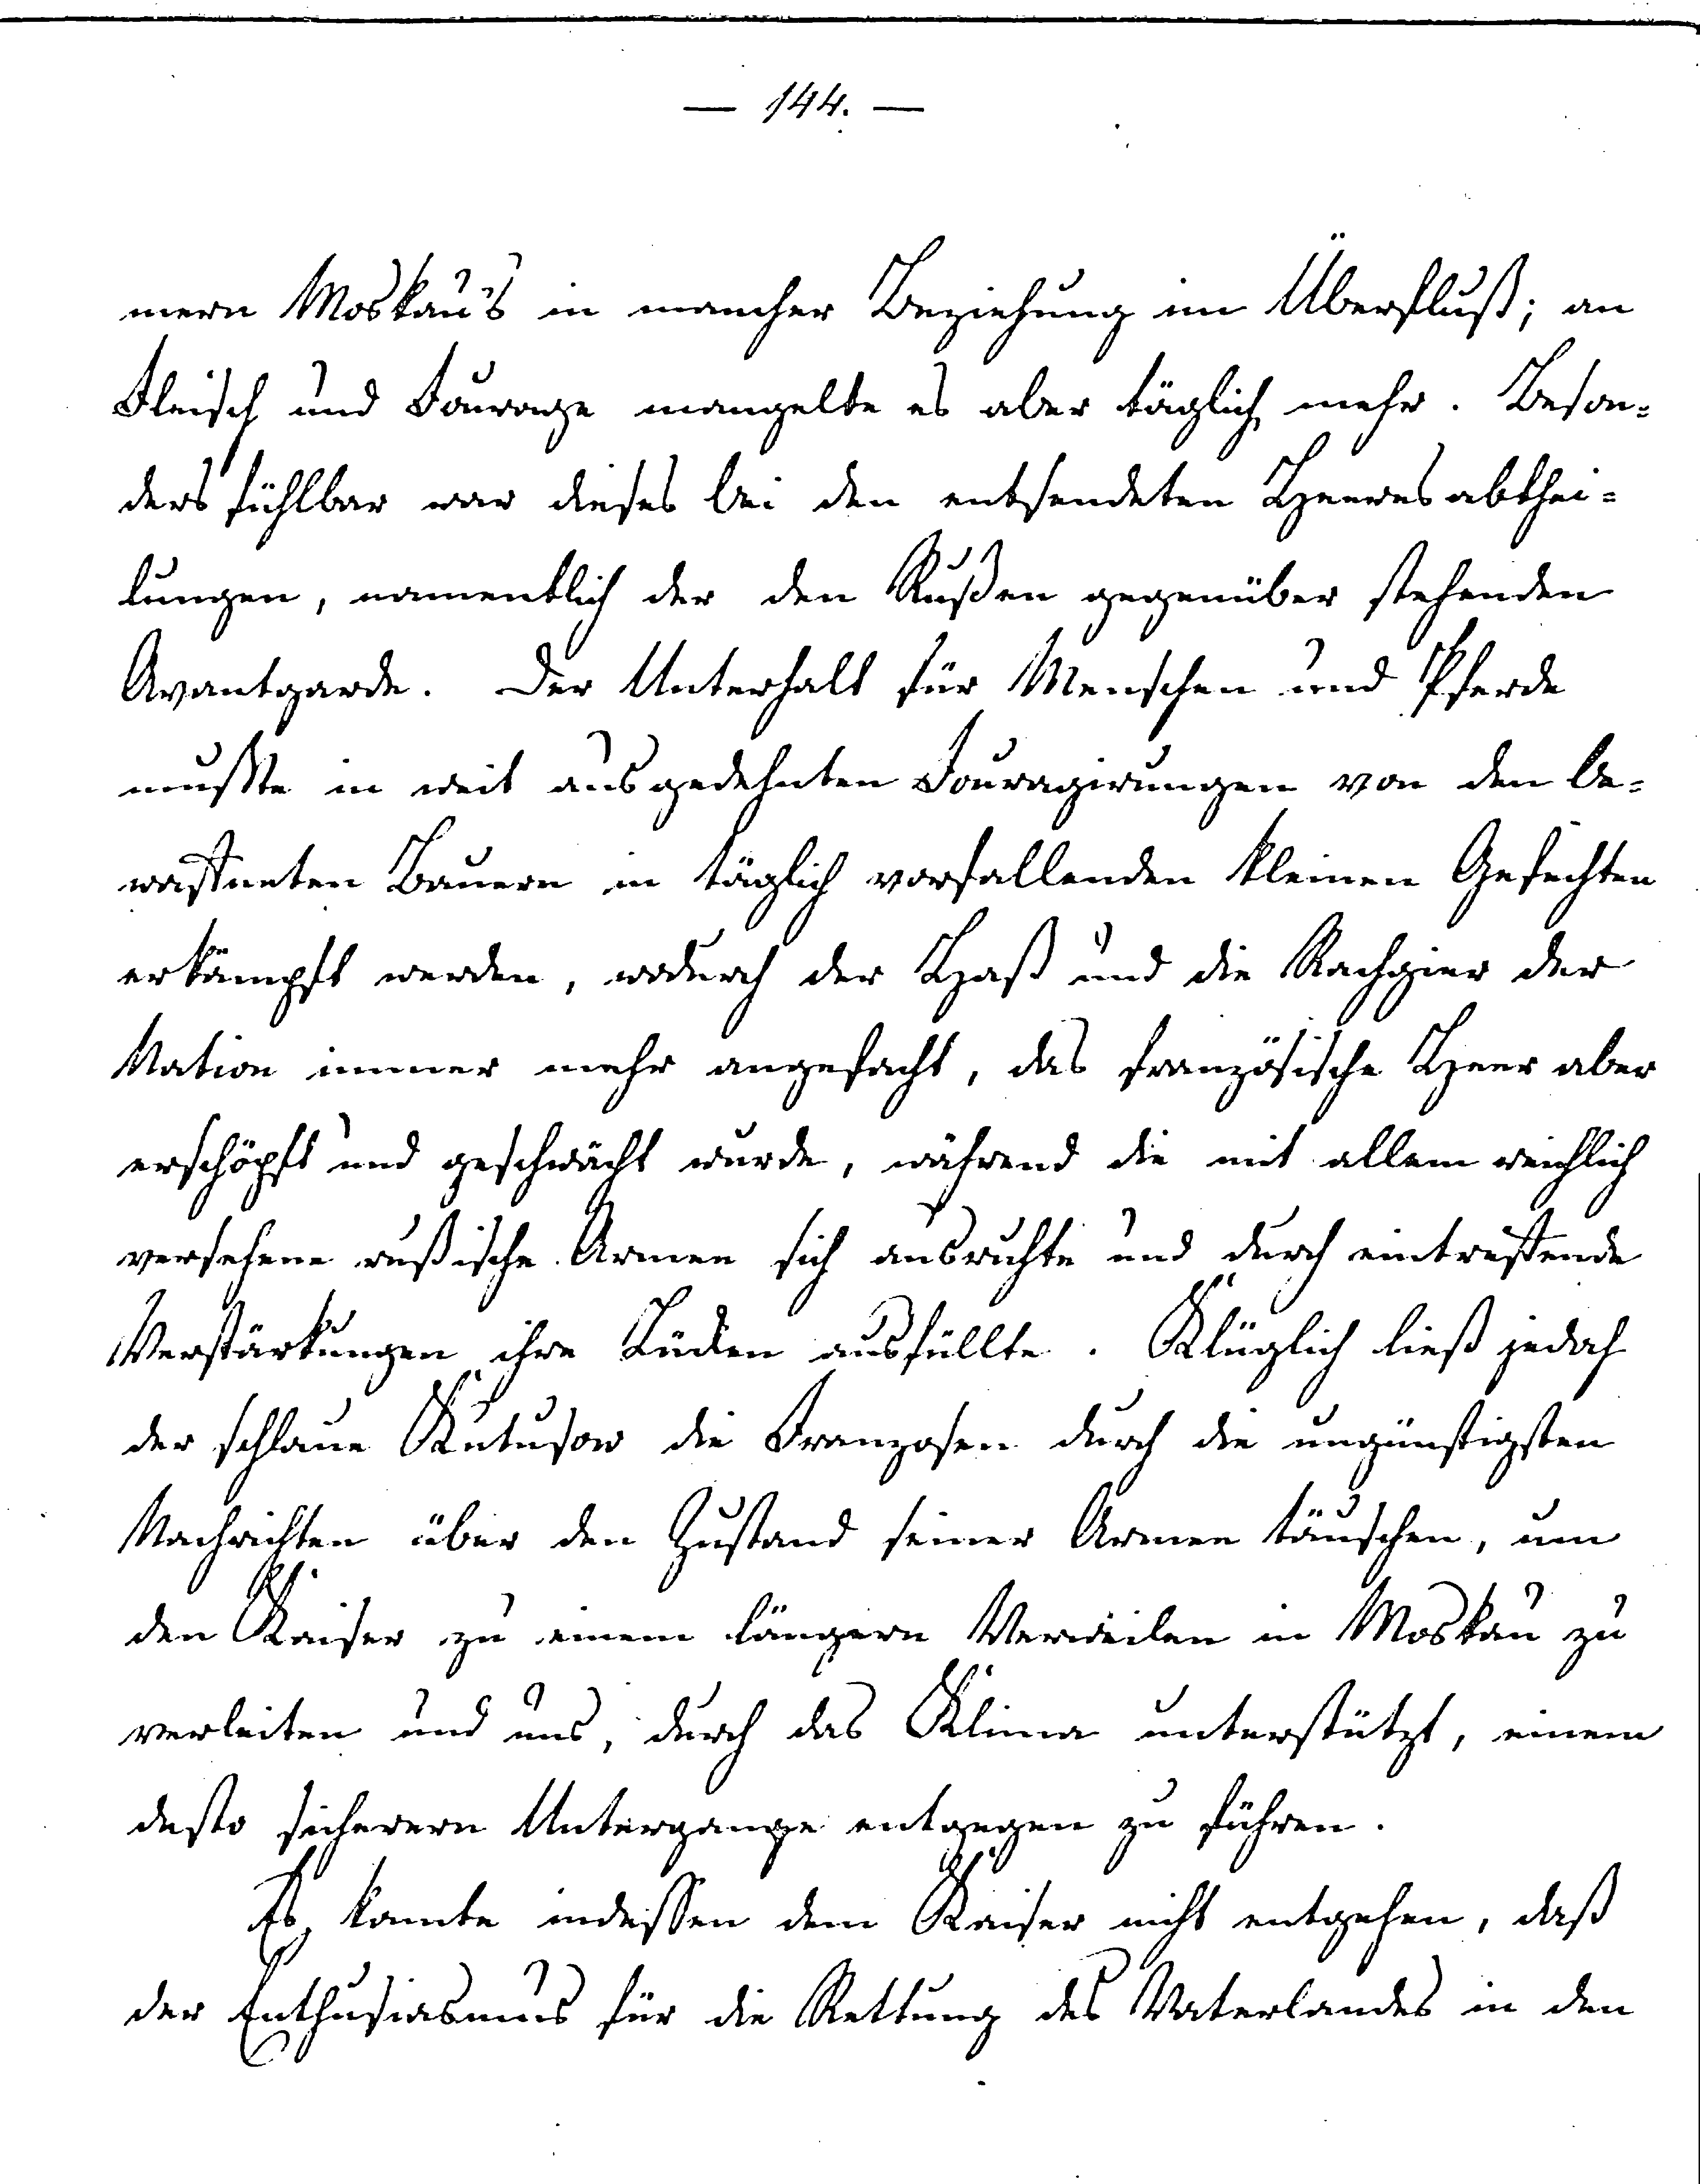 — 144. —
mern Moskau's in mancher Beziehung im Überfluß; an
Fleisch und Fourage mangelte es aber täglich mehr. Beson-
ders fühlbar war dieses bei den entsendeten Heeresabthei-
lungen, namentlich der den Rußen gegenüber stehenden
Avantgarde. Der Unterhalt für Menschen und Pferde
mußte in weit ausgedehnten Fouragirungen von den be-
waffneten Bauern in täglich vorfallenden kleinen Gefechten
erkämpft werden, wodurch der Haß und die Rachgier der
Nation immer mehr angefacht, das französische Heer aber
erschöpft und geschwächt wurde, während die mit allem reichlich
versehene rußische Armee sich ausruhte und durch eintreffende
Verstärkungen ihre Lücken ausfüllte. Klüglich ließ jedoch
der schlaue Kutusow die Franzosen durch die ungünstigsten
Nachrichten über den Zustand seiner Armee täuschen, um
den Kaiser zu einem längern Verweilen in Moskau zu
verleiten und uns, durch das Klima unterstützt, einem
desto sicherern Untergange entgegen zu führen.
Es konnte indessen dem Kaiser nicht entgehen, daß
der Enthusiasmus für die Rettung des Vaterlandes in den